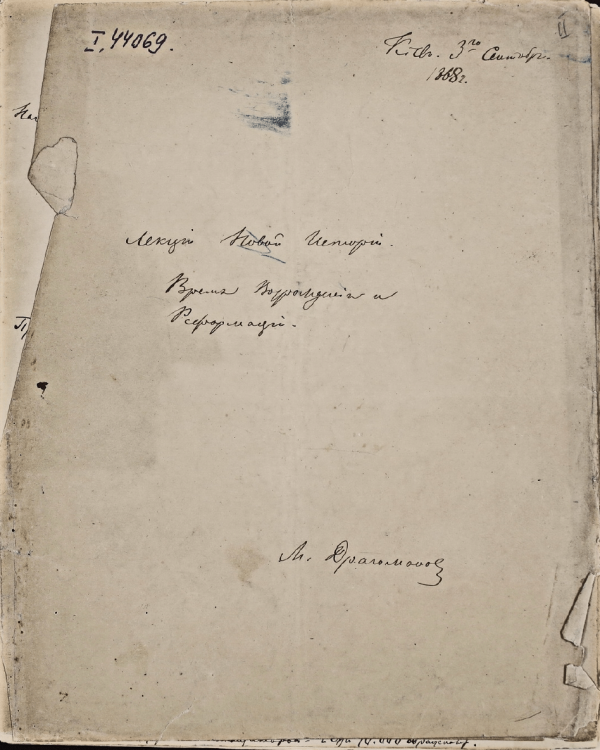 I, 44069.
II
Кіевъ. 3го Сентябр.
1868г.
Лекціи Новой Исторіи.
Время Возрожденія и
Реформаціи.
М. Драгомановъ
10.000